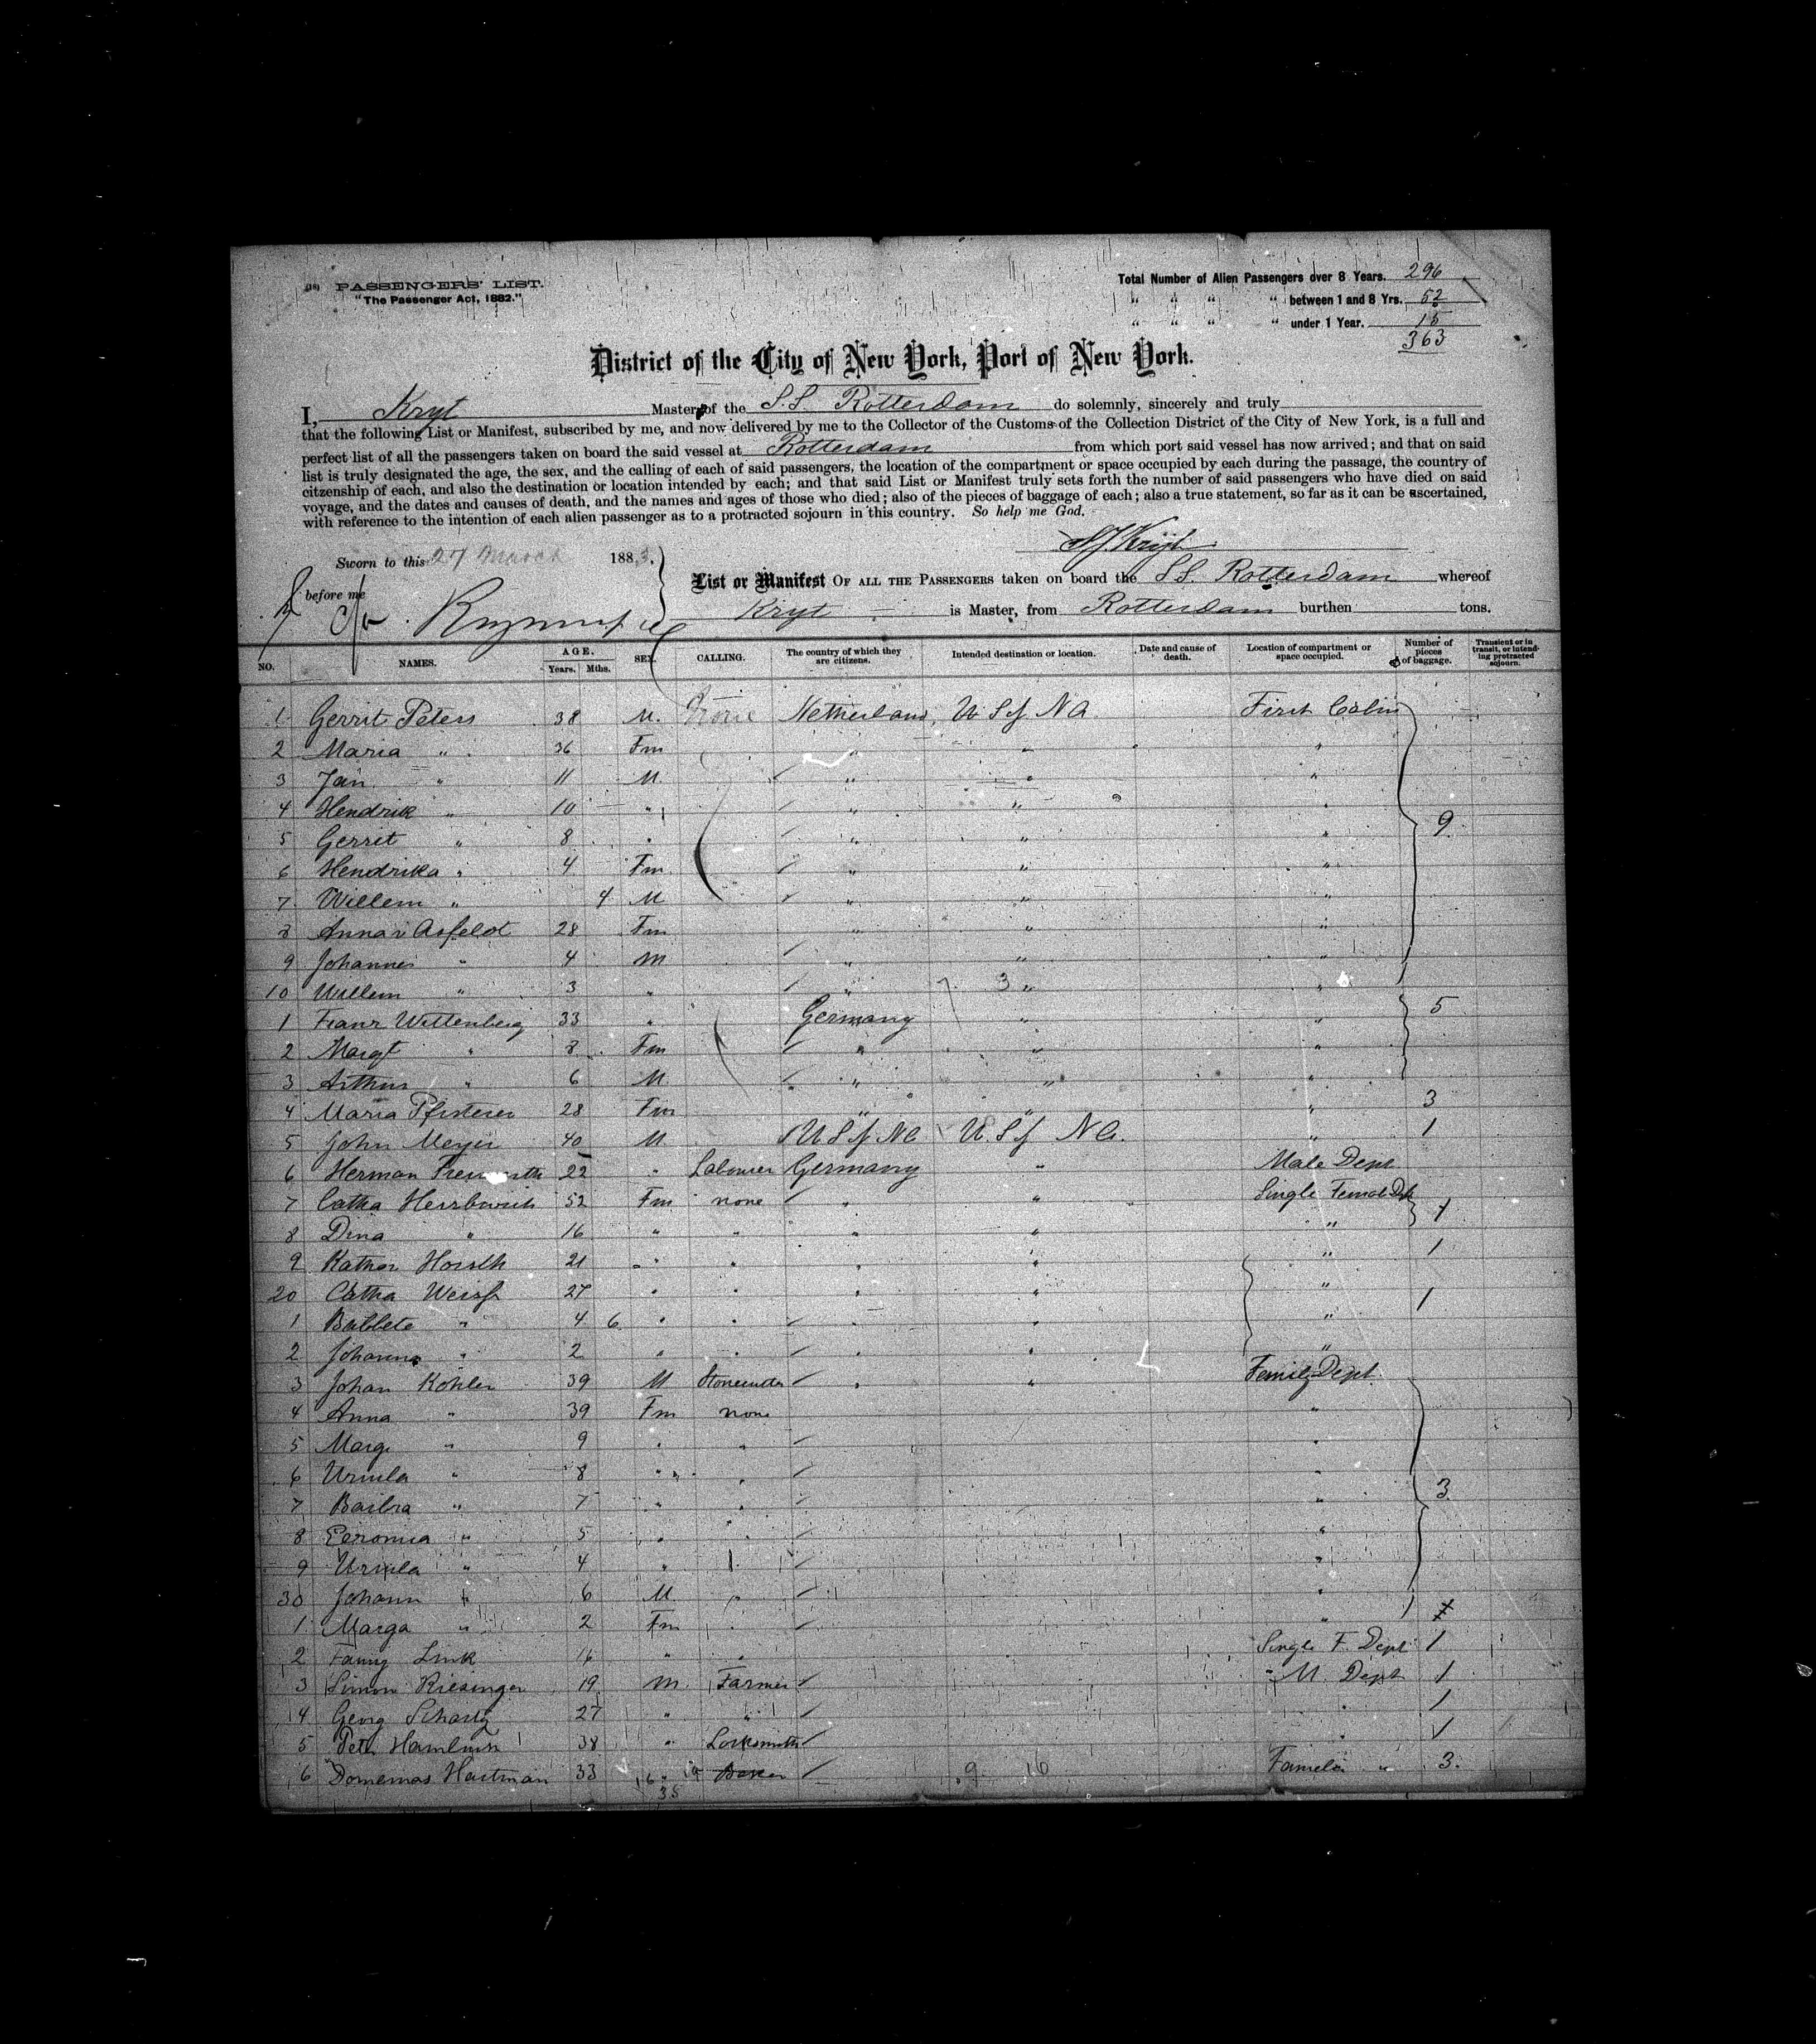 PASSENGERS' LIST.
"The Passenger Act, 1882."
Total Number of Alien Passengers over 8 Years. 296
" " " " between 1 and 8 Yrs. 52
" " " " under 1 Year. 15
363
District of the City of New York, Port of New York.
I, Kryt Master of the S.S. Rotterdam do solemnly, sincerely and truly
that the following List or Manifest, subscribed by me, and now delivered by me to the Collector of the Customs of the Collection District of the City of New York, is a full and
perfect list of all the passengers taken on board the said vessel at Rotterdam from which port said vessel has now arrived; and that on said
list is truly designated the age, the sex, and the calling of each of said passengers, the location of the compartment or space occupied by each during the passage, the country of
citzenship of each, and also the destination or location intended by each; and that said List or Manifest truly sets forth the number of said passengers who have died on said
voyage, and the dates and causes of death, and the names and ages of those who died; also of the pieces of baggage of each; also a true statement, so far as it can be ascertained,
with reference to the intention of each alien passenger as to a protracted sojourn in this country. So help me God.
Sworn to this 27 March 1883.
before me
List or Manifest OF ALL THE PASSENGERS taken on board the S.S. Rotterdam whereof
Kryt is Master, from Rotterdam burthen tons.
NO. NAMES. AGE. Years. Mths. SEX. CALLING. The country of which they are citizens. Intended destination or location. Date and cause of death. Location of compartment or space occupied. Number of pieces of baggage. Transient or in transit, or intending protracted sojourn.
1 Gerrit Peters 38 M. None Netherland, U S of N A First Cabin
2 Maria " 36 Fm " " "
3 Jan " 11 M " " "
4 Hendrik " 10 " " " "
5 Gerrit " 8 " " " " 9
6 Hendrika " 4 Fm " " "
7 Willem " 4 M " " "
8 Anna v Asfeldt 28 Fm " "
9 Johannes " 4 M " " "
10 Willem " 3 " " 3 " "
1 Franz Wittenberg 33 " Germany " " 5
2 Margt " 8 Fm " " "
3 Arthur " 6 M " " "
4 Maria Pfisterer 28 Fm " " " 3
5 John Meyer 40 M U S of N A U. S of N A. " 1
6 Herman 22 " Labourer Germany " Male Dept
7 Catha 52 Fm none " " Single Female Dpt
8 Dina " 16 " " " " "
9 21 " " " " " 1
20 Catha Weiss 27 " " " " " 1
1 Babbete " 4 6 " " " " "
2 Johanna " 2 " " " " "
3 Johan Kohler 39 M " " Family Dept.
4 Anna " 39 Fm none "
5 Marg " 9 " " "
6 Ursula " 8 " " " 3
7 Barbra " 7 " " "
8 " 5 " "
9 Ursula " 4 " "
30 Johann " 6 M " "
1 Marga " 2 Fm " "
2 Fanny Link 16 " " Single F. Dept 1
3 Simon Riesinger 19 M. Farmer " M. Dept 1
4 Georg 27 " " " 1
5 Peter 38 " Locksmith " 1
6 Hartman 33 " Baker 9 10 " 3.